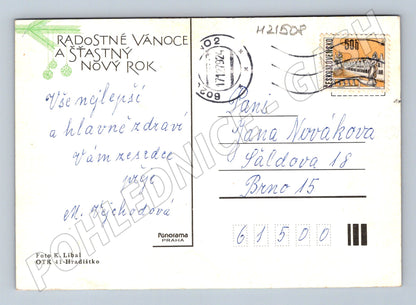 RADOSTNÉ VÁNOCE
A ŠŤASTNÝ
NOVÝ ROK
Vše nejlepší
a hlavně zdraví
Vám ze srdce
přeje
M. Východová
Foto K. Líbal
OTK 41-Hradištko
Panorama
PRAHA
H21508
60h
ČESKOSLOVENSKO
Paní
Jana Nováková
Šaldova 18
Brno 15
61500
POHLEDNICE